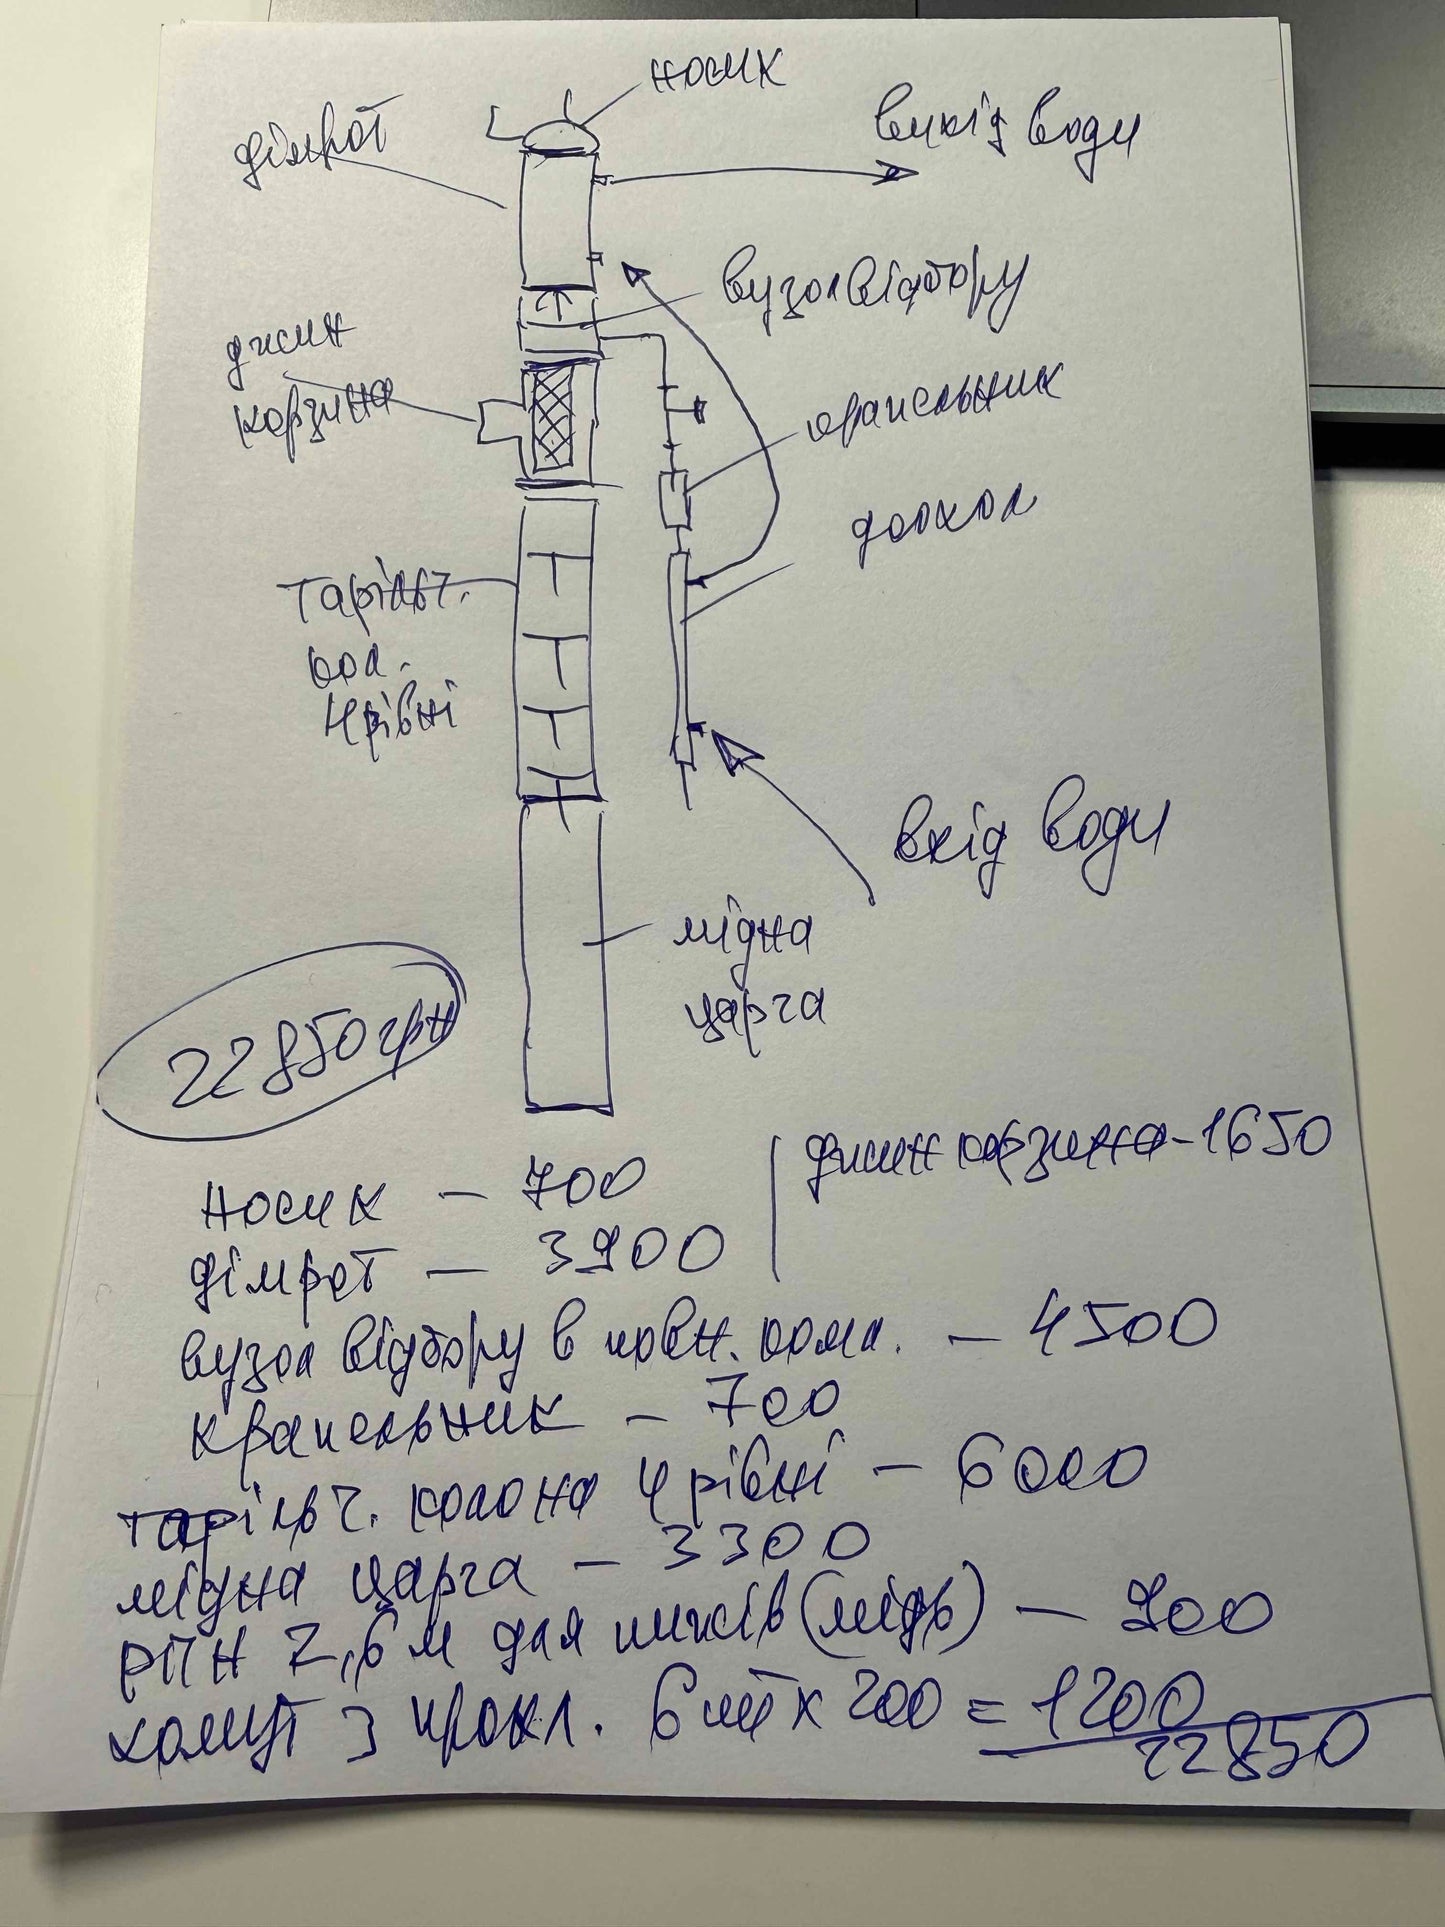 носик
дімрот
вихід води
вузол відбору
джин
корзина
крапельник
доохол
тарільч.
кол.
4 рівні
вхід води
мідна
царга
22850 грн
джин корзина - 1650
носик - 700
дімрот - 3900
вузол відбору в повн. комл. - 4500
крапельник - 700
тарільч. колона 4 рівні - 6000
мідна царга - 3300
РПН 2,6 м для (мідь) - 900
хомут з прокл. 6 шт x 200 = 1200
22850